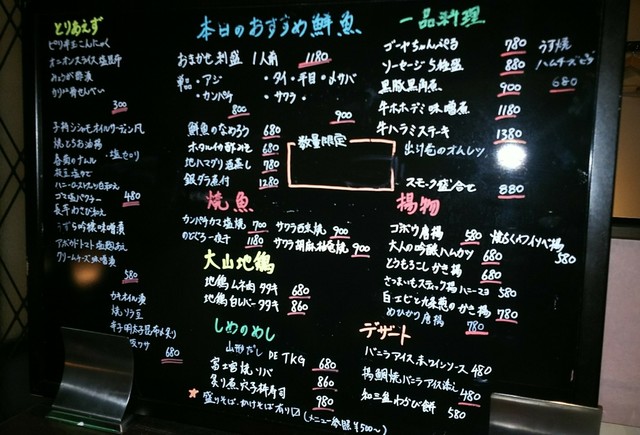 とりあえず
ピリ辛玉こんにゃく
オニオンスライス 塩昆布
みょうが酢漬
300
焼とうお油揚
春菊のナムル ・塩セロリ
枝豆塩ゆで
ゴマ塩パクチー
長芋わさび和え
480
うずら吟醸味噌漬
アボカドトマト塩昆布和え
クリームチーズ味噌漬
580
カキオイル漬
焼ソラ豆
辛子明太子昆布〆炙り
680
本日のおすすめ鮮魚
おまかせ刺盛 1人前 1180
単品 ・アジ ・タイ・平目・〆サバ
・カンパチ ・サワラ
800 900
鮮魚のなめろう 680
ホタルイカ酢みそ 680
地ハマグリ酒蒸し 780
銀ダラ煮付 1280
数量限定
焼魚
カンパチカマ塩焼 700 サワラ西京焼 900
のどぐろ一夜干 1180 サワラ胡麻柚庵焼 900
大山地鶏
地鶏ムネ肉タタキ 680
地鶏白レバータタキ 860
しめのめし
山形だし DE TKG 680
富士宮焼ソバ 860
炙り煮穴子棒寿司 980
★盛りそば・かけそば有り〼 (メニュー参照¥500〜)
一品料理
ゴーヤちゃんぷる 780
ソーセージ5種盛 880
黒豚黒角煮 900
牛ホホデミ味噌煮 1180
牛ハラミステーキ 1380
スモーク盛合せ 880
うす焼
ハムチーズピザ
680
揚物
ゴボウ唐揚 580
大人の吟醸ハムカツ 680
とうもろこしかき揚 680
さつまいもスティック揚ハニーマヨ 580
白エビと九条葱のかき揚 780
めひかり唐揚 780
580
デザート
バニラアイス、赤ワインソース 480
揚鯛焼バニラアイス添え 480
和三盆わらび餅 580